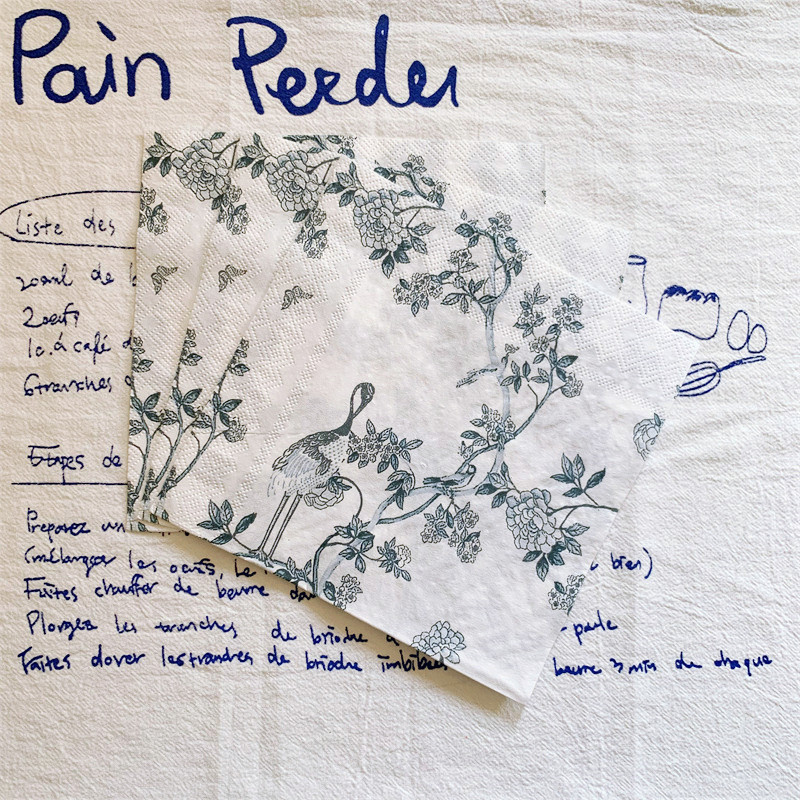 Pain Perdu
Liste des
200ml de
2 oeufs
1c. à café d
6 tranches d
Etapes de
Préparez un
(mélanger les oeufs, le bien)
Faites chauffer de beurre dan
Plongez les tranches de brioche
Faites dorer les tranches de brioche imbibées beurre 3 min de chaque